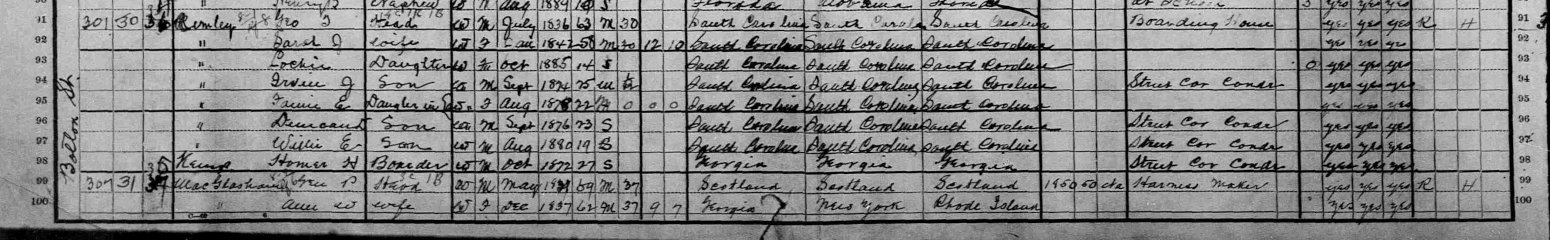 Nephew W M Aug 1884 S Florida
91 301 30 Remley Geo Head W M July 1836 63 M 30 South Carolina South Carolina South Carolina Boarding House yes yes yes R H 91
92 " Sarah J wife W F 1842 58 M 30 12 10 South Carolina South Carolina South Carolina yes yes yes 92
93 " Lockie Daughter W F Oct 1885 14 S South Carolina South Carolina South Carolina 0 yes yes yes 93
94 " J Son W M Sept 1874 25 M South Carolina South Carolina South Carolina Street Car Condr yes yes yes 94
95 " Fannie E Daughter in W F Aug 22 0 0 0 South Carolina South Carolina South Carolina yes yes yes 95
96 " Son W M Sept 1876 23 S South Carolina South Carolina South Carolina Street Car Condr yes yes yes 96
97 " Willie E Son W M Aug 1880 19 S South Carolina South Carolina South Carolina Street Car Condr yes yes yes 97
98 Homer H Boarder W M Oct 1872 27 S Georgia Georgia Georgia Street Car Condr yes yes yes 98
99 307 31 Head W M May 69 M 37 Scotland Scotland Scotland 1850 50 Na Harness Maker yes yes yes R H 99
100 " Ann W wife W F Dec 1837 62 M 37 9 7 Georgia New York Rhode Island yes yes yes 100
Bolton St.